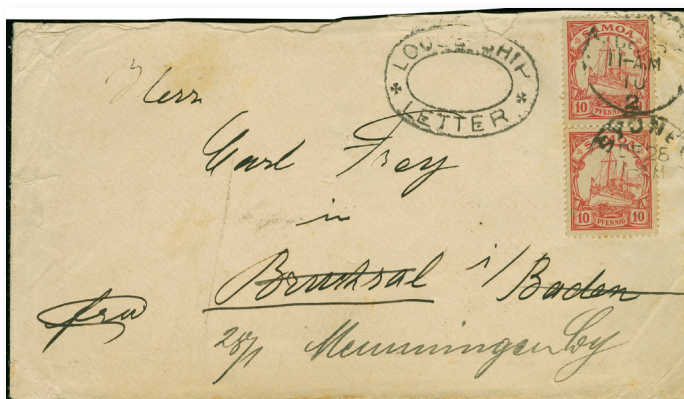 LOOSE SHIP
LETTER
SAMOA
11-AM
10
2
10 PFENNIG 10
SAMOA
28
10 PFENNIG 10
Herrn
Carl Frey
in
Bruchsal i/Baden
fra
28/1 Memmingen By